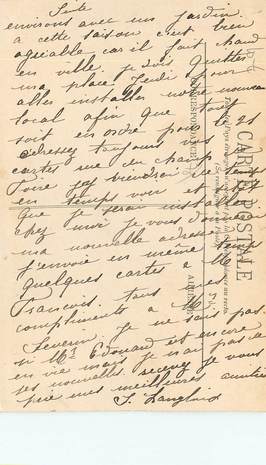 Suite
environs avec un jardin
a cette saison c'est bien
agréable car il fait chaud
en ville. je dois quitter
ma place Jeudi pour
aller installer notre nouveau
local afin que tout
soit en ordre pour le 21
adressez toujours vos
cartes rue du champ de
foire j'y viendrai de temps
en temps voir et des
que je serai installée
chez moi je vous donnerai
ma nouvelle adresse
j'envoie en même temps
quelques cartes a Mr
François. tous mes
compliments a Mr
Severin. je ne sais pas
si Mr Edouard est encore
en vie mais je n'ai pas de
ses nouvelles. recevez je vous
prie mes meilleures amitiés
CARTE POSTALE
CORRESPONDANCE
ADRESSE